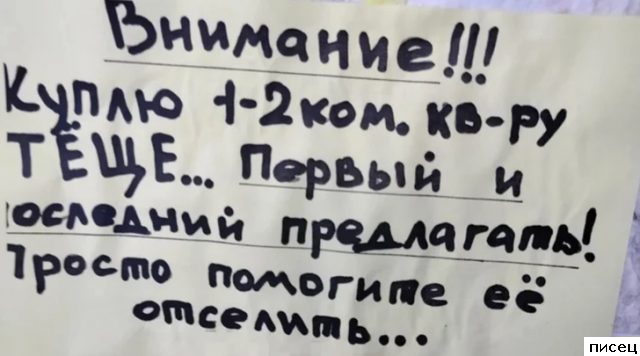 Внимание!!!
Куплю 1-2 ком. кв-ру
ТЁЩЕ... Первый и
последний предлагать!
Просто помогите её
отселить...
писец